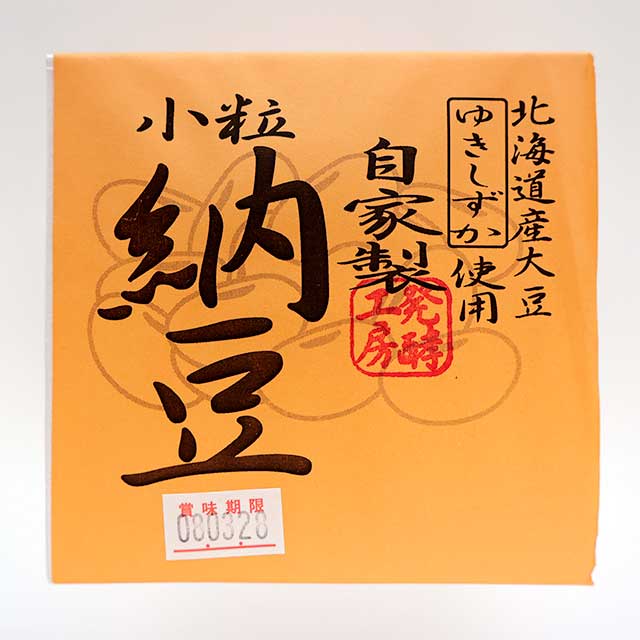 北海道産大豆
ゆきしずか使用
自家製
発酵
工房
小粒
納豆
賞味期限
08.03.28